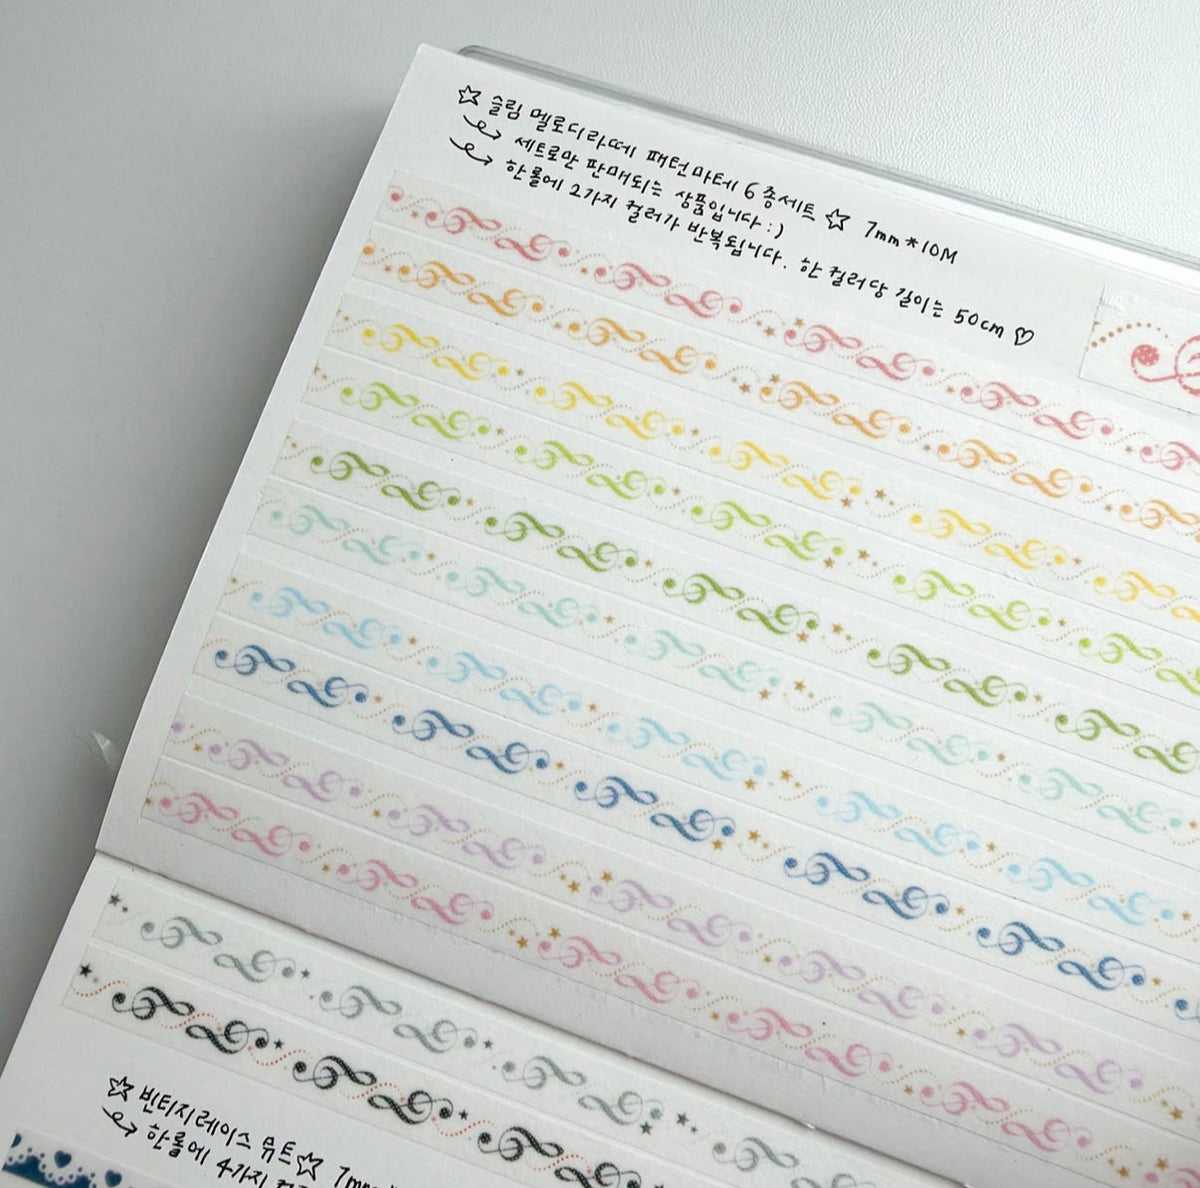 ☆ 슬림 멜로디라떼 패턴마테 6종세트 ☆ 7mm*10M
세트로만 판매되는 상품입니다:)
한 롤에 2가지 컬러가 반복됩니다. 한 컬러당 길이는 50cm ♡
☆ 빈티지레이스 뮤트☆ 7mm
한롤에 4가지